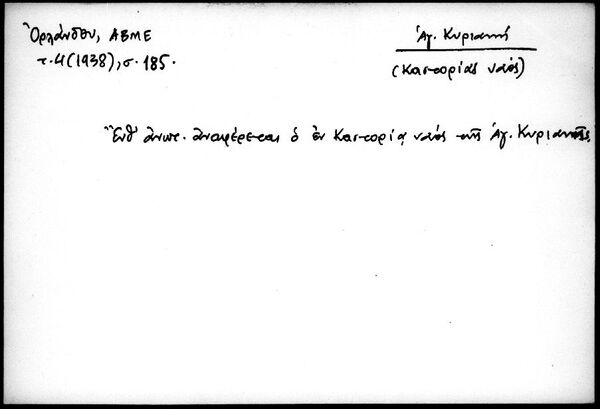 Ὀρλάνδου, ΑΒΜΕ
τ. Δ (1938), σ. 185.
Ἁγ. Κυριακή
(Καστορίας ναός)
Ἔνθ' ἀνωτ. ἀναφέρεται ὁ ἐν Καστορίᾳ ναός τῆς Ἁγ. Κυριακῆς.